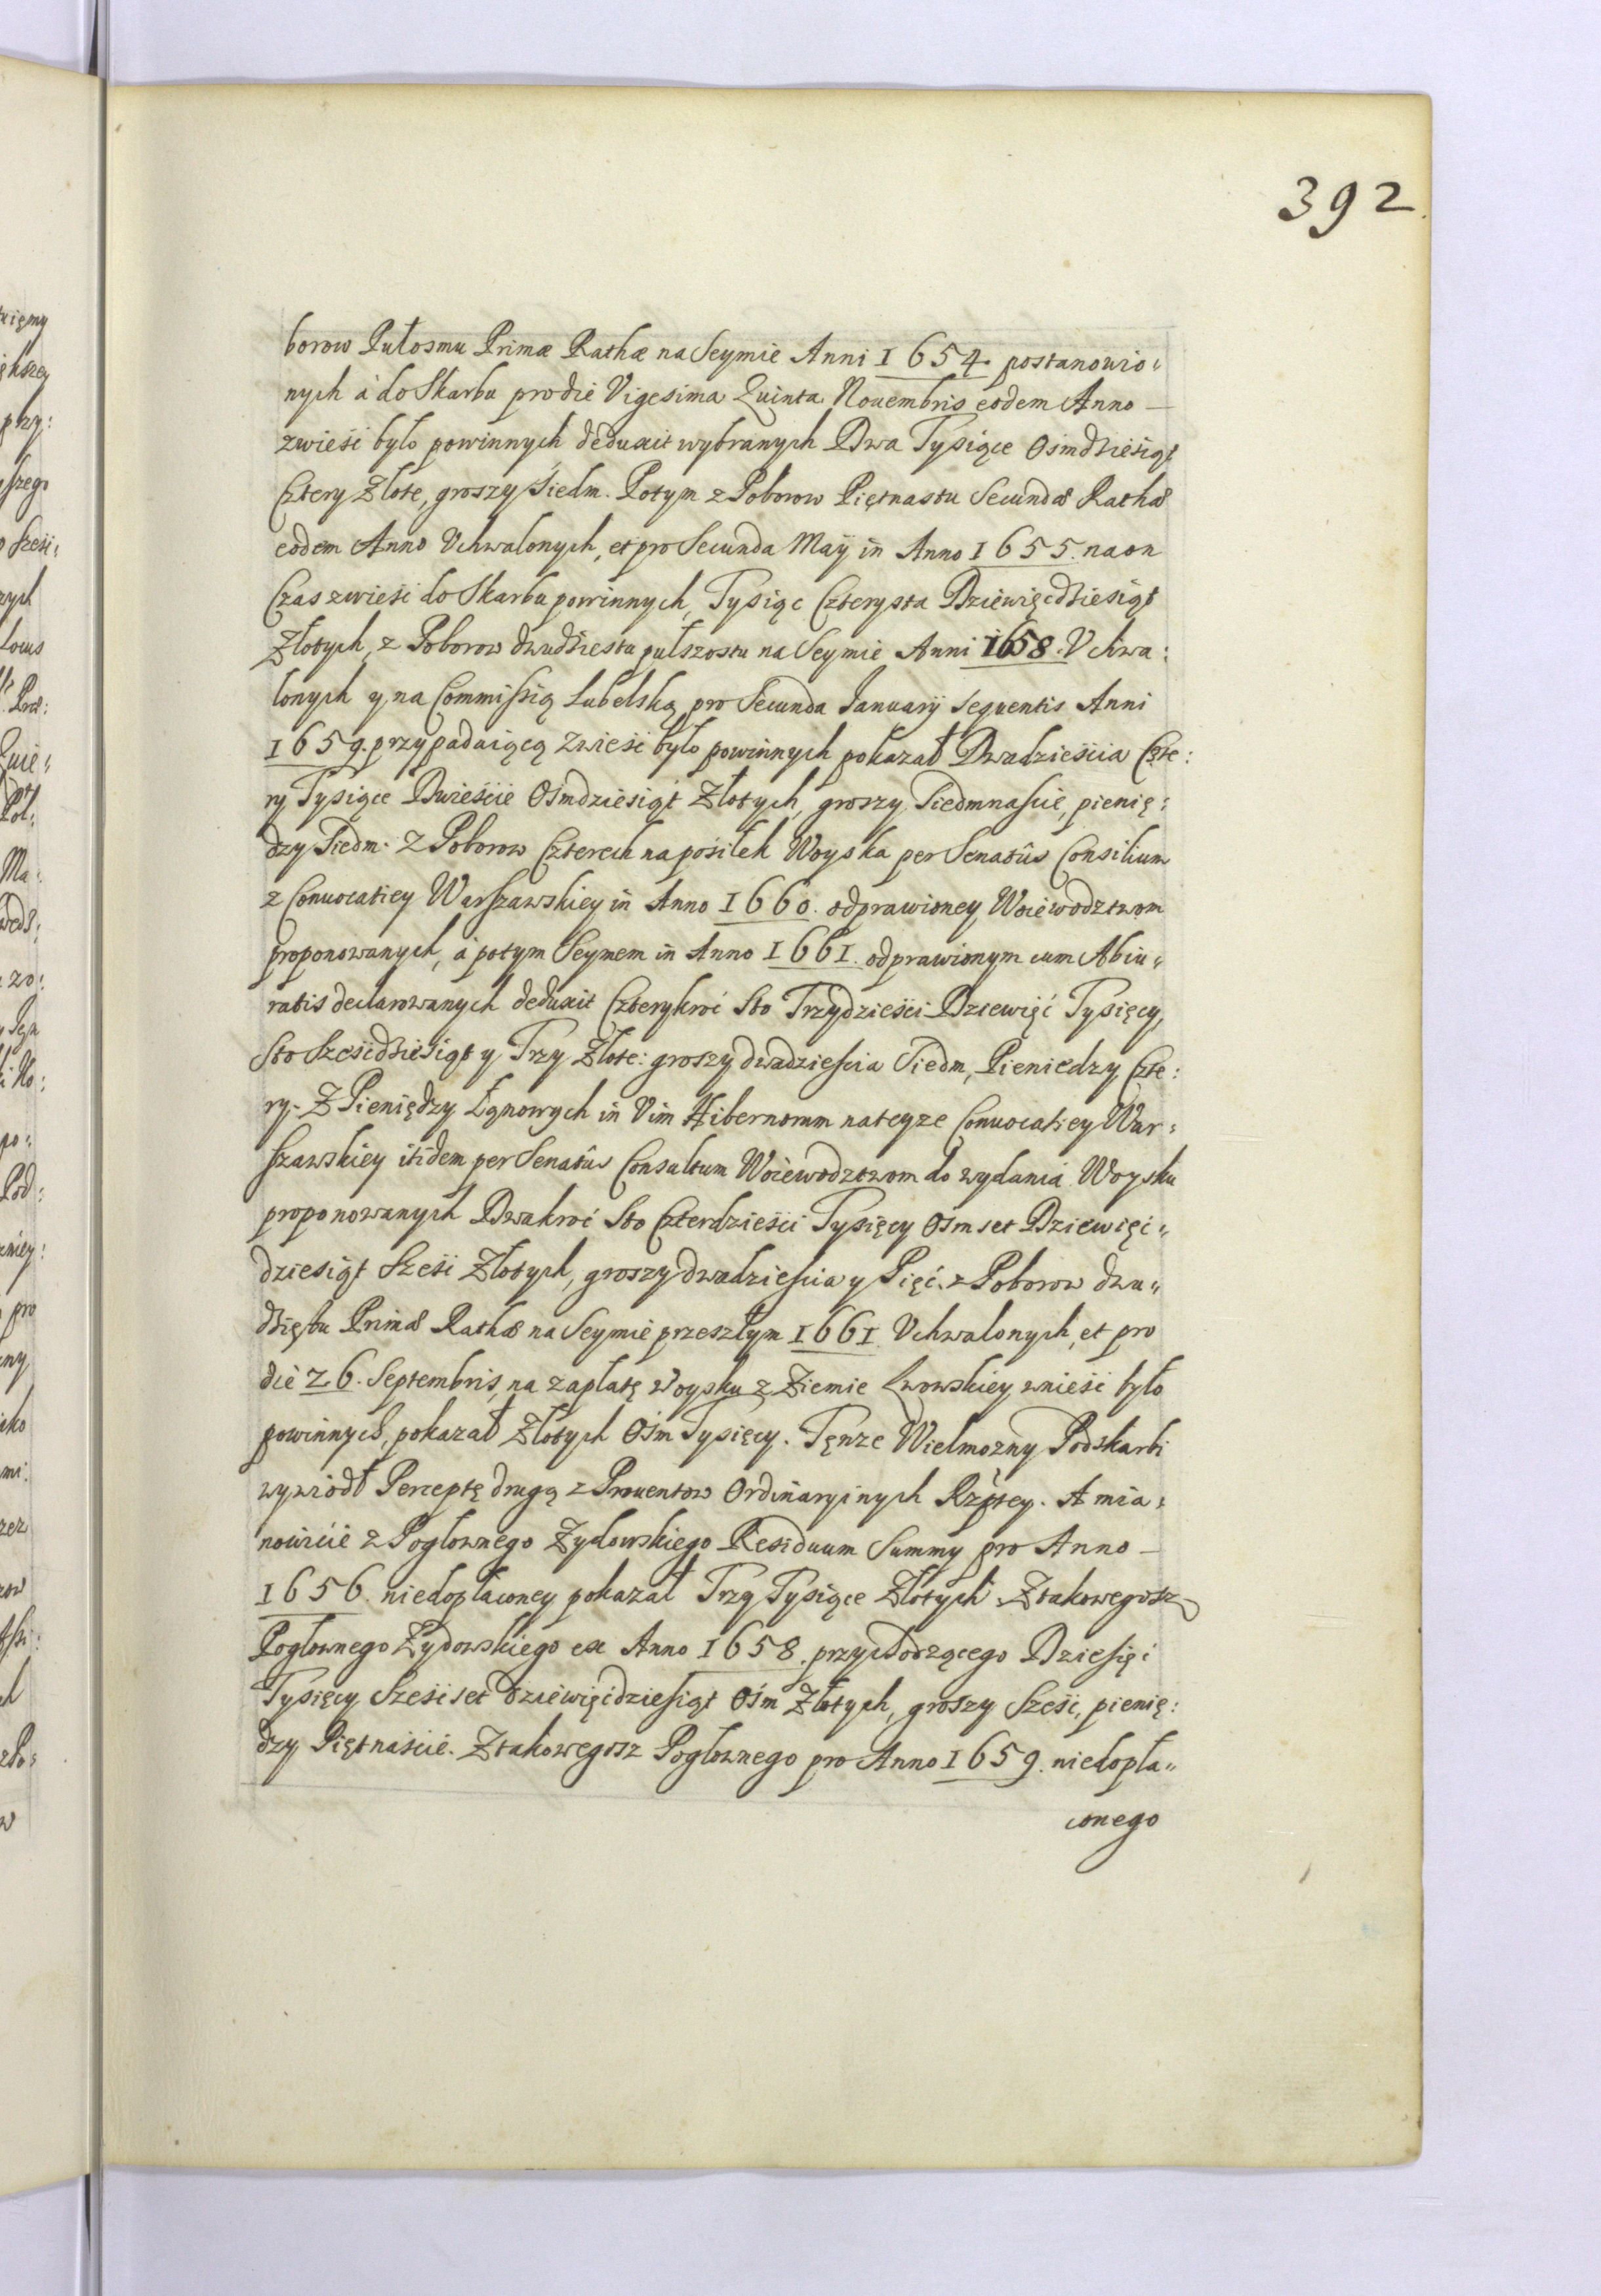 392
borow Pułosmu Primæ Rathæ na Seymie Anni 1654. postanowio:
nych á do Skarbu pro die Vigesima Quinta Nouembris eodem Anno —
zwieść było powinnych deduxit wybranych Dwa Tysiące Ośmdzieśiąt
Cztery Złote, groszy Siedm. Potym z Poborow Piętnastu Secundæ Rathæ
eodem Anno Vchwalonych, et pro Secunda Maÿ in Anno 1655. na on
Czas zwieść do Skarbu powinnych, Tysiąc Czterysta Dziewięcdziesiąt
Złotych, z Poborow dwudziestu pułszostu na Seymie Anni 1658. Vchwa:
lonych y na Commissią Lubelską pro Secunda Januarÿ sequentis Anni
1659. przypadaiącą zwieść było powinnych pokazał Dwadzieścia Czte:
ry Tysiące Dwieście Ośmdziesiąt Złotych, groszy Siedmnaście, pienię:
dzy Siedm. Z Poborow Czterech na posiłek Woyska per Senatûs Consilium
z Conuocatiey Warszawskiey in Anno 1660. odprawioney Woiewodztwom
proponowanych, á potym Seymem in Anno 1661. odprawionym cum Abiu:
ratis declarowanych deduxit Czterykroć Sto Trzydzieści Dziewięć Tysięcy,
Sto Sześćdziesiąt y Trzy Złote: groszy dwadzieścia Siedm, Pieniedzy Czte:
ry. Z Pieniędzy Łąnowych in Vim Hibernorum na teyze Conuocatiey War:
szawskiey itidem per Senatûs Consultum Woiewodztwom do wydania Woysku
proponowanych Dwakroć Sto Czterdzieści Tysięcy Ośmset Dziewięć:
dziesiąt Sześć Złotych, groszy dwadzieścia y Pięć. z Poborow dwu:
dziestu Primæ Rathæ na Seymie przeszłym 1661. Vchwalonych, et pro
die 26. Septembris, na zapłatę Woysku z Ziemie Lwowskiey wnieść było
powinnych, pokazał Złotych Ośm Tysięcy. Tęnze Wielmozny Podskarbi
wywiodł Perceptę drugą z Prouentow Ordinaryinych Rzptey. A mia:
nowićie z Pogłownego Zydowskiego Residuum Summy pro Anno —
1656. niedopłaconey pokazał Trzy Tysiące Złotych. Ztakowegosz
Pogłownego Zydowskiego ex Anno 1658. przychodzącego Dziesięć
Tysięcy Sześćset dziewięćdziesiąt Ośm Złotych, groszy Sześć, pienię:
dzy Piętnaście. Ztakowegosz Pogłownego pro Anno 1659. niedopła:
conego